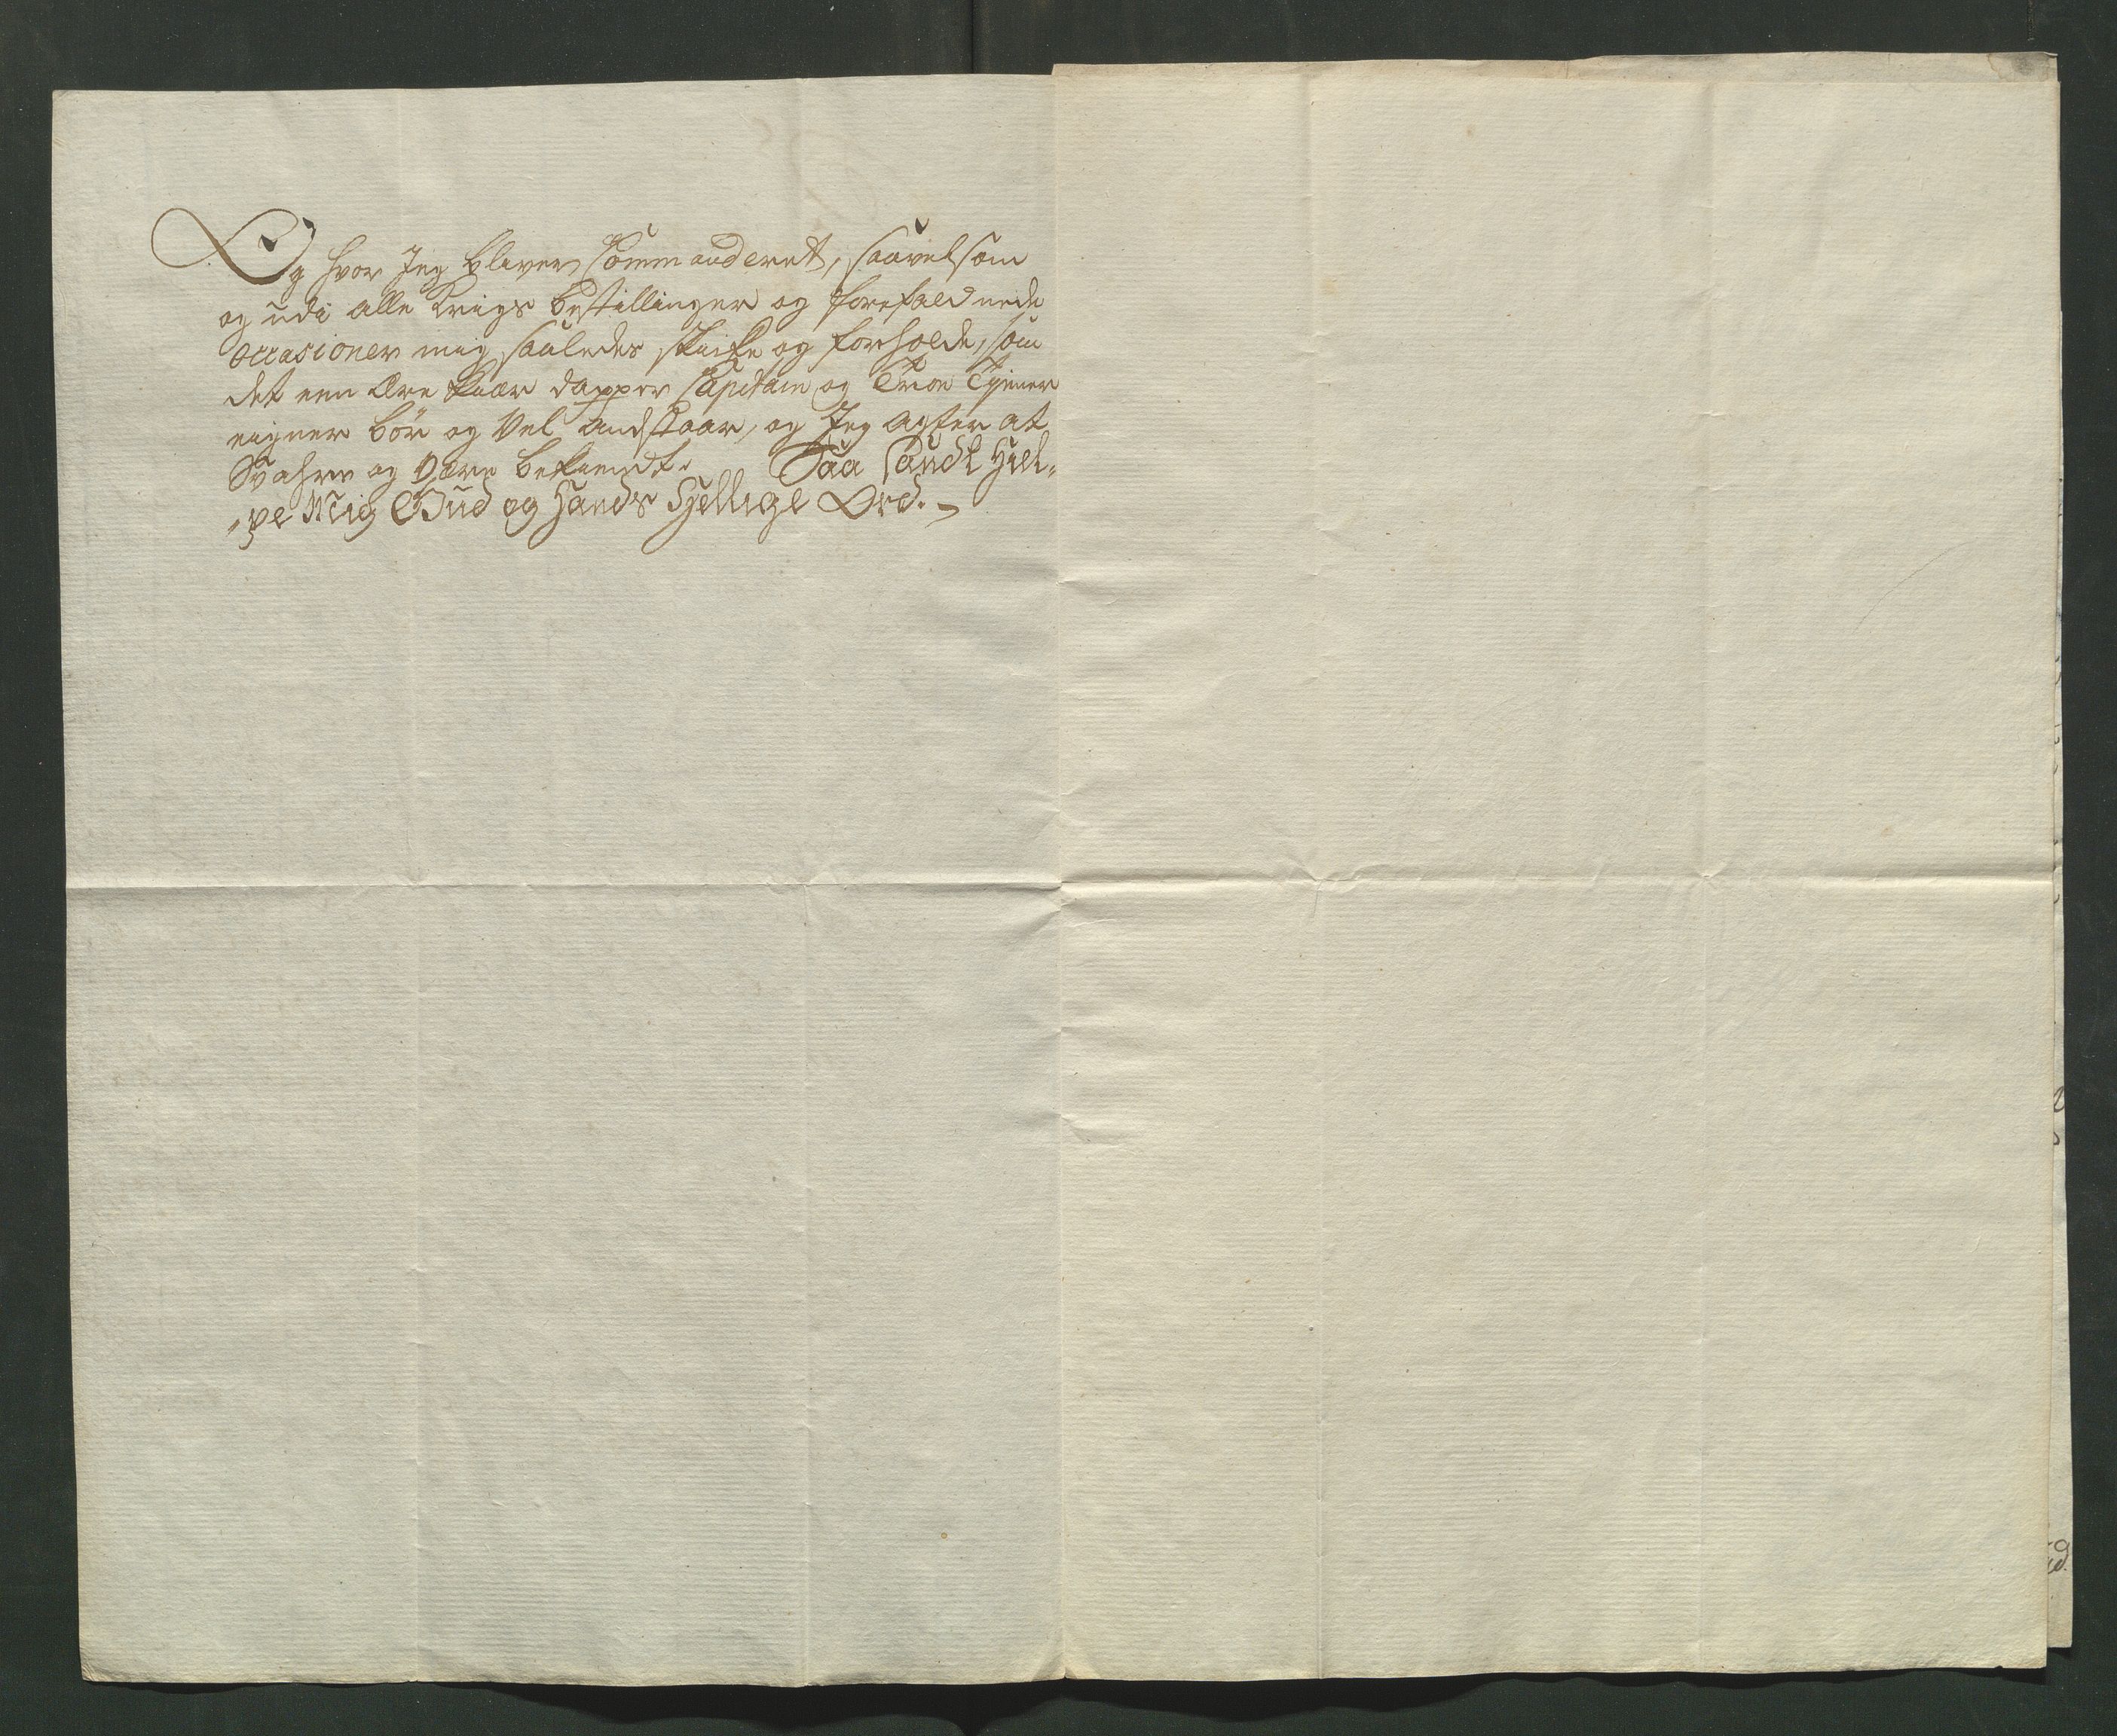 Og hvor Jeg bliver Commanderet, saavelsom
og udi alle Krigs bestillinger og forefaldnede
occasioner mig saaledes skicke og forholde, som
det een Ære kiær dapper Capitain og Troe Tjener
eigner bör og Vel andstaar, og Jeg agter at
Svahre og Være bekiendt. Saa Sandt Hiel-
-pe Mig Gud og Hands Hellige Ord.